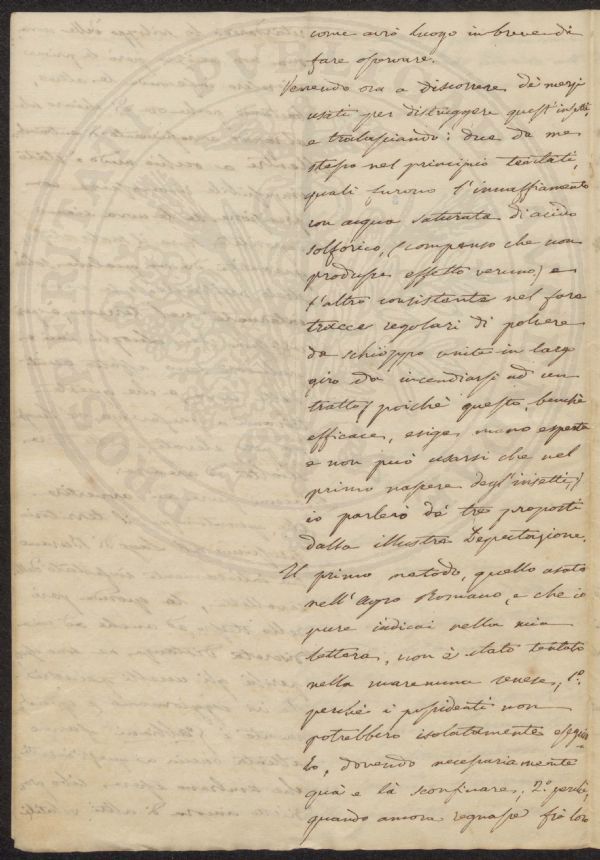 come avrò luogo in breve di
fare osservare.
Venendo ora a discorrere de' mezzi
usati per distruggere quest'insetti,
e tralasciando i due da me
stesso nel principio tentati,
quali furono l'innaffiamento
con acqua saturata di acido
solforico, (compenso che non
produsse effetto veruno) e
l'altro consistente nel fare
tracce regolari di polvere
da schioppo unite in largo
giro da incendiarsi ad un
tratto, poichè questo, benchè
efficace, esige mano esperta
e non può usarsi che nel
primo nascere degl'insetti,
io parlerò de' tre proposti
dalla illustre Deputazione.
Il primo metodo, quello usato
nell'Agro Romano, e che io
pure indicai nella mia
lettera, non è stato tentato
nella maremma senese, 1.º
perchè i possidenti non
potrebbero isolatamente eseguir
lo, dovendo necessariamente
quà e là sconfinare; 2.º perchè,
quando ancora regnasse frà loro